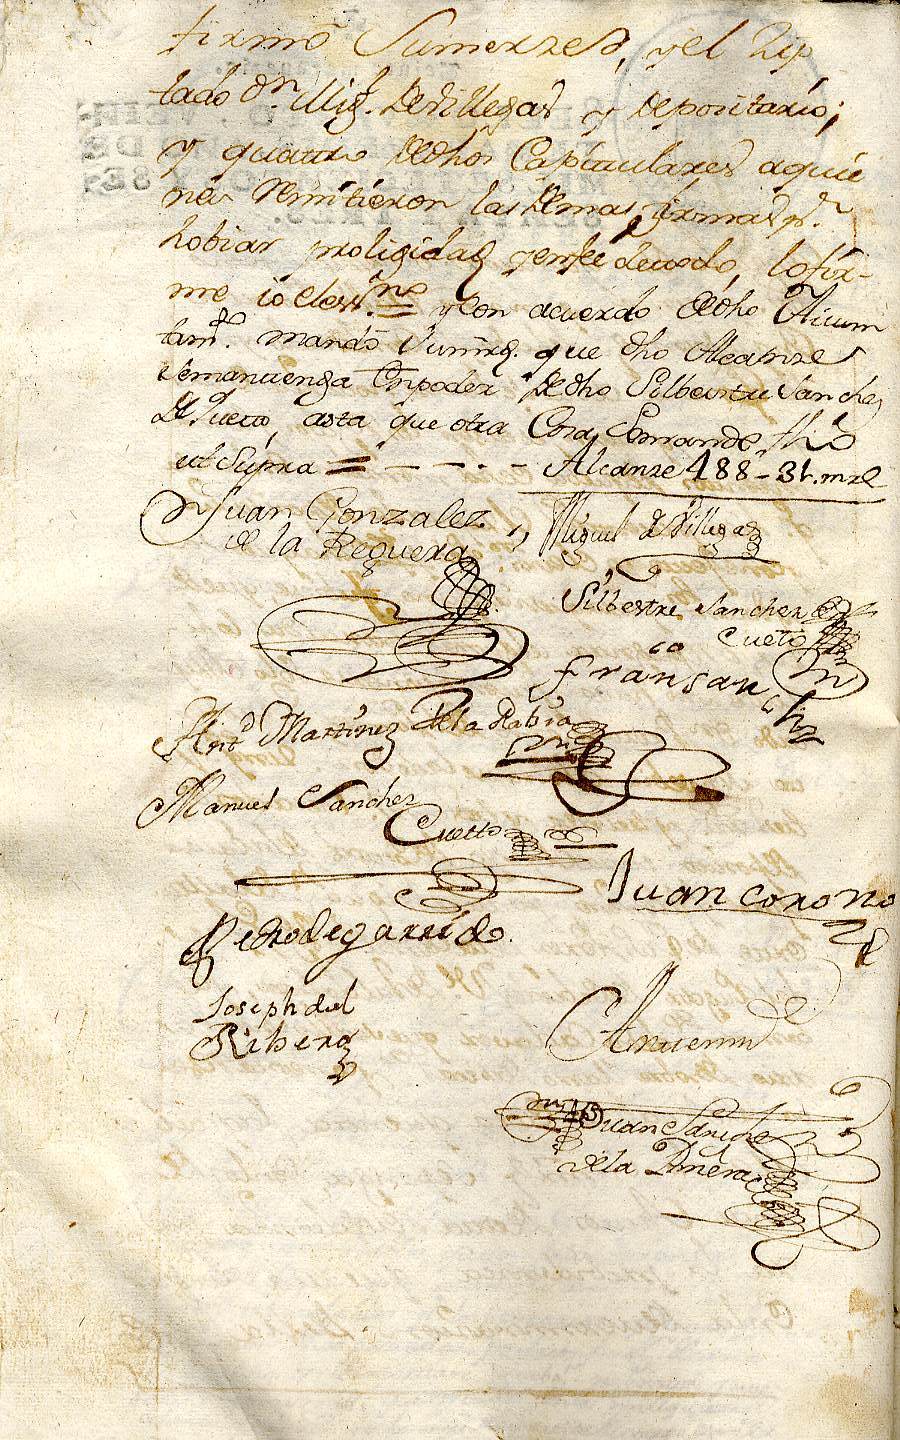 firmò Sumerzed, y el Dip
tado Dn. Migl. de Villegas y Depositario;
y quattro de dhos Capitulares aquie
nes remitieron las demas firmas pr.
hobiar proligidad y en fee de todo, lo fir-
me io el essno = y con acuerdo de dho Aiun
tamto. mandò Sumrd. que dho Alcanze
se mantenga en poder de dho Silbestre Sanchez
de Cueto, asta que otra Cosa se mande fho
ut Supra = - - - . - Alcanze 488 - 31. mrs
Dn Juan Gonzalez
de la Reguera
Miguel de Villegas
Silbestre Sanchez de
Cueto
franco Sanchz
Anto Martinez de la Rabia
Manuel Sanchez
Cuetto
Juan corono
Pedro de garrido.
Joseph del
Ribero
Antemi
Juan Sanche
de la